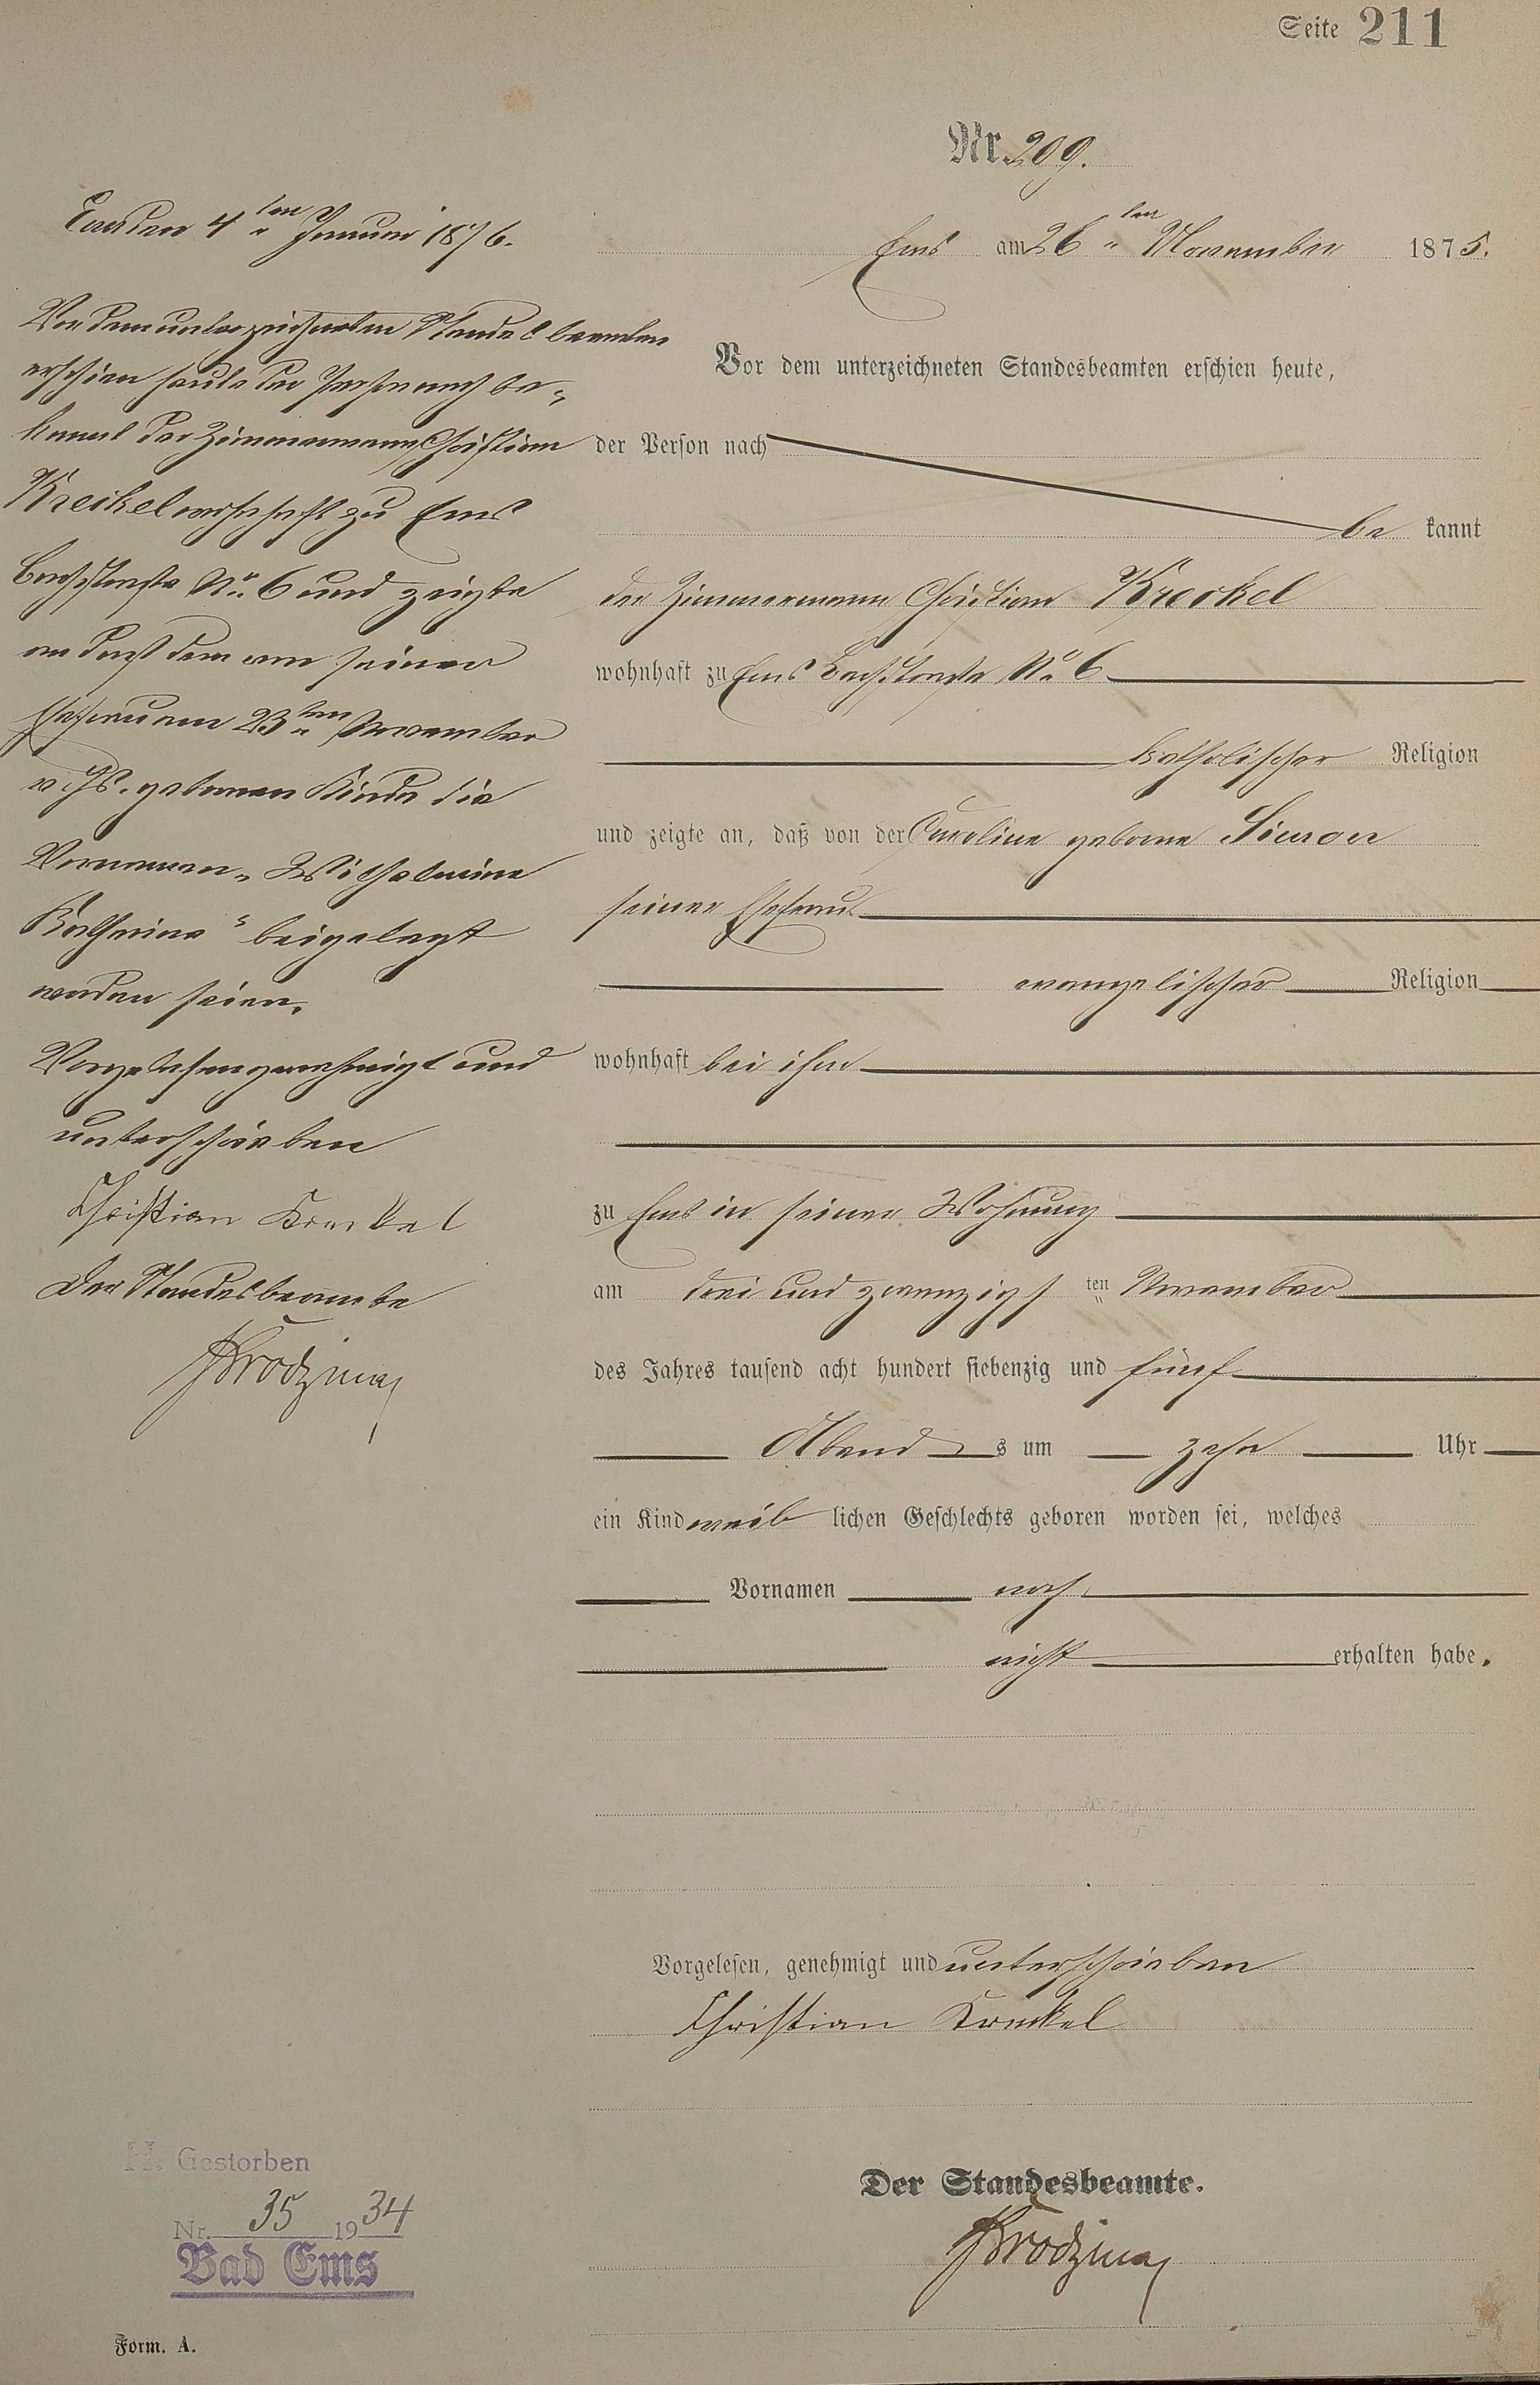 Seite 211
Nr. 209.
Ems am 26ten November 1875.
Vor dem unterzeichneten Standesbeamten erschien heute,
der Person nach
be kannt
der Zimmermann Christian Kreckel
wohnhaft zu Ems Bachstraße No. 6
katholischer Religion
und zeigte an, daß von der Caroline geborne
seiner Ehefrau
evangelischer Religion
wohnhaft bei ihm
zu Ems in seiner Wohnung
am drei und zwanzigsten November
des Jahres tausend acht hundert siebenzig und fünf
Abends um zehn Uhr
ein Kind weiblichen Geschlechts geboren worden sei, welches
Vornamen noch
nicht erhalten habe.
Vorgelesen, genehmigt und unterschrieben
Christian Kreckel
Der Standesbeamte.
Ems den 4ten Januar 1876.
Vor dem unterzeichneten Standesbeamten
erschien heute der Person nach be-
kannt der Zimmermann Christian
Kreckel wohnhaft zu Ems
Bachstraße No. 6 und zeigte
an daß dem von seiner
Ehefrau am 23ten November
v. Js. gebornen Kinde die
Vornamen „Wilhelmine
Kathrine“ beigelegt
worden seien.
Vorgelesen genehmigt und
unterschrieben
Christian Kreckel
Der Standesbeamte
H. Gestorben
Nr. 35 1934
Bad Ems
Form. A.